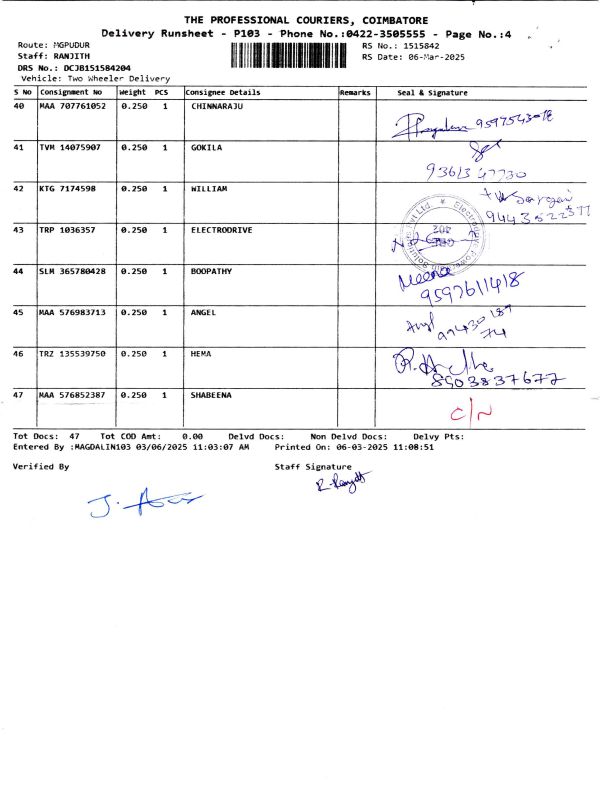 THE PROFESSIONAL COURIERS, COIMBATORE
Delivery Runsheet - P103 - Phone No.:0422-3505555 - Page No.:4
Route: MGPUDUR RS No.: 1515842
Staff: RANJITH RS Date: 06-Mar-2025
DRS No.: DCJB151584204
Vehicle: Two Wheeler Delivery
S No Consignment No Weight PCS Consignee Details Remarks Seal & Signature
40 MAA 707761052 0.250 1 CHINNARAJU
41 TVM 14075907 0.250 1 GOKILA
9361347730
42 KTG 7174598 0.250 1 WILLIAM
9443522577
43 TRP 1036357 0.250 1 ELECTRODRIVE
44 SLM 365780428 0.250 1 BOOPATHY
Meena
9597611418
45 MAA 576983713 0.250 1 ANGEL
46 TRZ 135539750 0.250 1 HEMA
8903837677
47 MAA 576852387 0.250 1 SHABEENA
C/N
Tot Docs: 47 Tot COD Amt: 0.00 Delvd Docs: Non Delvd Docs: Delvy Pts:
Entered By :MAGDALIN103 03/06/2025 11:03:07 AM Printed On: 06-03-2025 11:08:51
Verified By Staff Signature